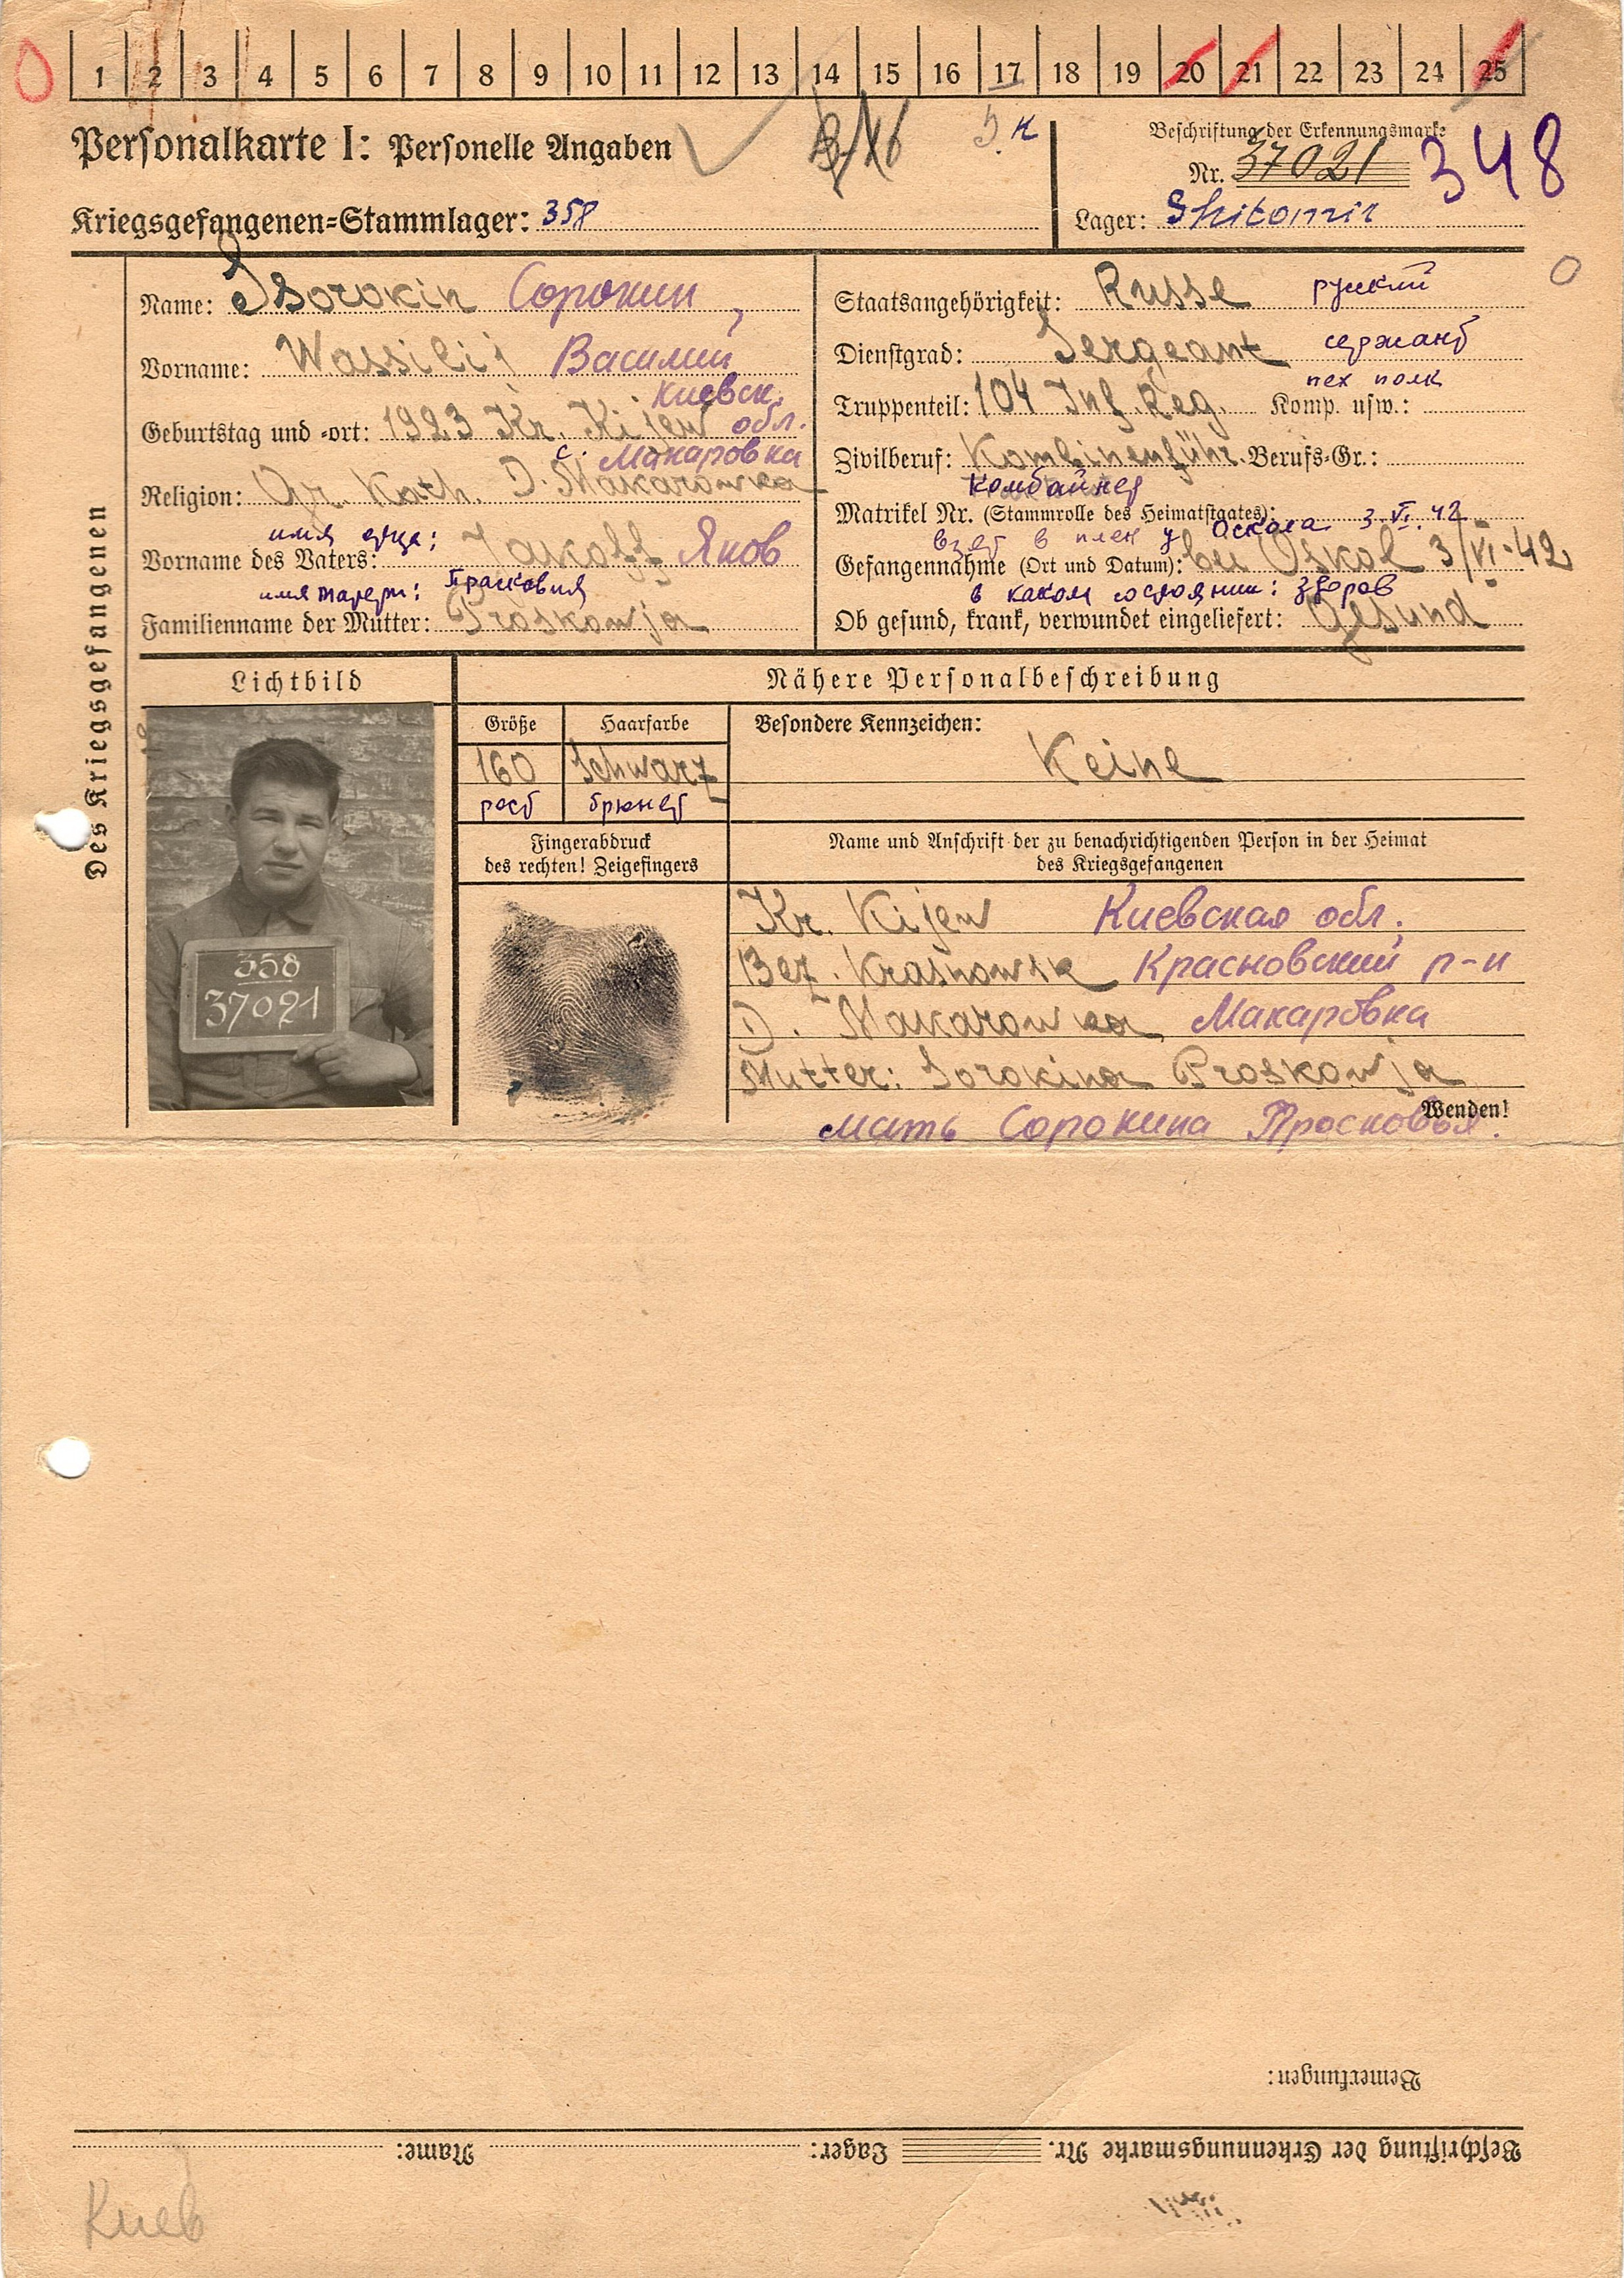 0 1 2 3 4 5 6 7 8 9 10 11 12 13 14 15 16 17 18 19 20 21 22 23 24 25
Personalkarte I: Personelle Angaben
Beschriftung der Erkennungsmarke
Nr. 37021 348
Kriegsgefangenen-Stammlager: 358
Lager: Shitomir
Des Kriegsgefangenen
Name: Ssorokin Сорокин
Vorname: Wassilij Василий
Киевск. обл.
Geburtstag und -ort: 1923 Kr. Kijew
с. Макаровка
Religion: Gr. Kath. D. Makarowka
имя отца:
Vorname des Vaters: Jakoff Яков
имя матери: Прасковия
Familienname der Mutter: Proskowja
Staatsangehörigkeit: Russe русский
Dienstgrad: Sergeant сержант
пех полк
Truppenteil: 104 Inf. Reg. Komp. usw.:
Zivilberuf: Kombinenführ. Berufs-Gr.:
комбайнер
Matrikel Nr. (Stammrolle des Heimatstaates):
взят в плен у Оскола 3.VI.42
Gefangennahme (Ort und Datum): bei Oskol 3/VI.42
в каком состоянии: здоров
Ob gesund, krank, verwundet eingeliefert: Gesund
Lichtbild
358
37021
Nähere Personalbeschreibung
Größe Haarfarbe
160 Schwarz
рост брюнет
Besondere Kennzeichen:
Keine
Fingerabdruck
des rechten! Zeigefingers
Name und Anschrift der zu benachrichtigenden Person in der Heimat
des Kriegsgefangenen
Kr. Kijew Киевская обл.
Bez. Krasnowsk Красновский р-н
D. Makarowka Макаровка
Mutter: Sorokina Proskowja
Wenden!
мать Сорокина Просковья.
Bemerkungen:
Beschriftung der Erkennungsmarke Nr. Lager: Name:
Киев